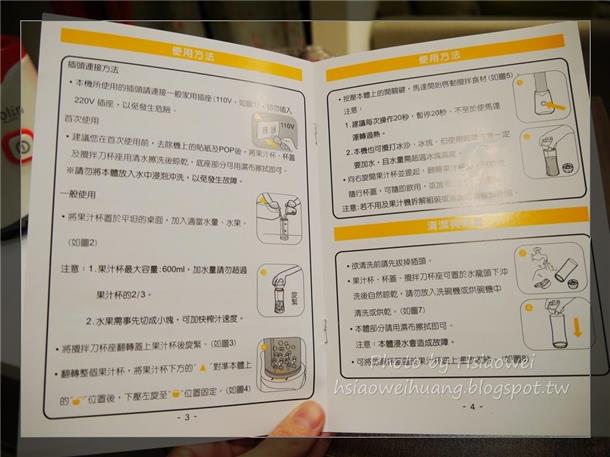 使用方法
插頭連接方法
・本機所使用的插頭請連接一般家用插座(110V，如圖1)，切勿插入
220V 插座，以免發生危險。
110V
首次使用
・建議您在首次使用前，去除機上的貼紙及POP後，將果汁杯、杯蓋
及攪拌刀杯座用清水擦洗後晾乾，底座部分可用濕布擦拭即可。
※請勿將本體放入水中浸泡沖洗，以免發生故障。
一般使用
・將果汁杯置於平坦的桌面，加入適當水量、水果。
(如圖2)
注意：1.果汁杯最大容量:600ml，加水量請勿超過
果汁杯的2/3。
2.水果需事先切成小塊，可加快榨汁速度。
旋緊
・將攪拌刀杯座翻轉蓋上果汁杯後旋緊。(如圖3)
・翻轉整個果汁杯，將果汁杯下方的"▲"對準本體上
的" "位置後，下壓左旋至" "位置固定。(如圖4)
- 3 -
使用方法
・按壓本體上的開關鍵，馬達開始啓動攪拌食材(如圖5)。
注意：
1.建議每次操作20秒，暫停20秒，不至於使馬達
運轉過熱。
2.本機也可攪打冰沙、冰塊，但使用時請注意一定
要加水，且水量需超過冰塊高度。
・向右旋開果汁杯並提起，翻轉果汁杯
隨行杯蓋，可隨即飲用，或
注意:若不用及果汁機拆解組裝
清潔與
・欲清洗前請先拔掉插頭。
・果汁杯、杯蓋、攪拌刀杯座可置於水龍頭下沖
洗後自然晾乾，請勿放入洗碗機或烘碗機中
清洗或烘乾。(如圖7)
・本體部分請用濕布擦拭即可。
注意：本體浸水會造成故障。
・可將 (如圖8)
- 4 -
Photo by Hsiaowei
hsiaoweihuang.blogspot.tw